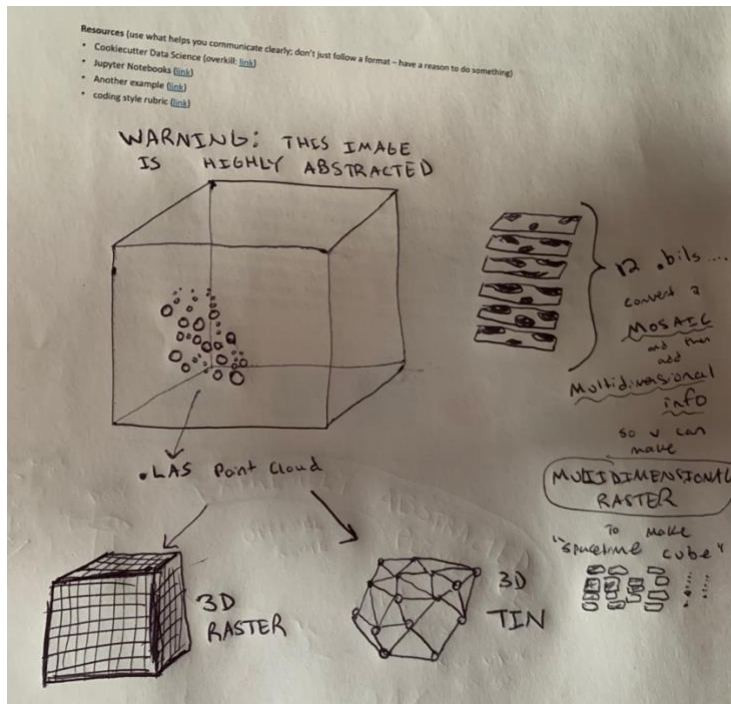 Resources (use what helps you communicate clearly; don't just follow a format – have a reason to do something)
• Cookiecutter Data Science (overkill: link)
• Jupyter Notebooks (link)
• Another example (link)
• coding style rubric (link)
WARNING: THIS IMAGE
IS HIGHLY ABSTRACTED
.LAS Point Cloud
3D
RASTER
3D
TIN
12 .bils....
convert 2
MOSAIC
and then
add
Multidimensional
info
so u can
make
MULTIDIMENSIONAL
RASTER
To make
"spacetime cube"